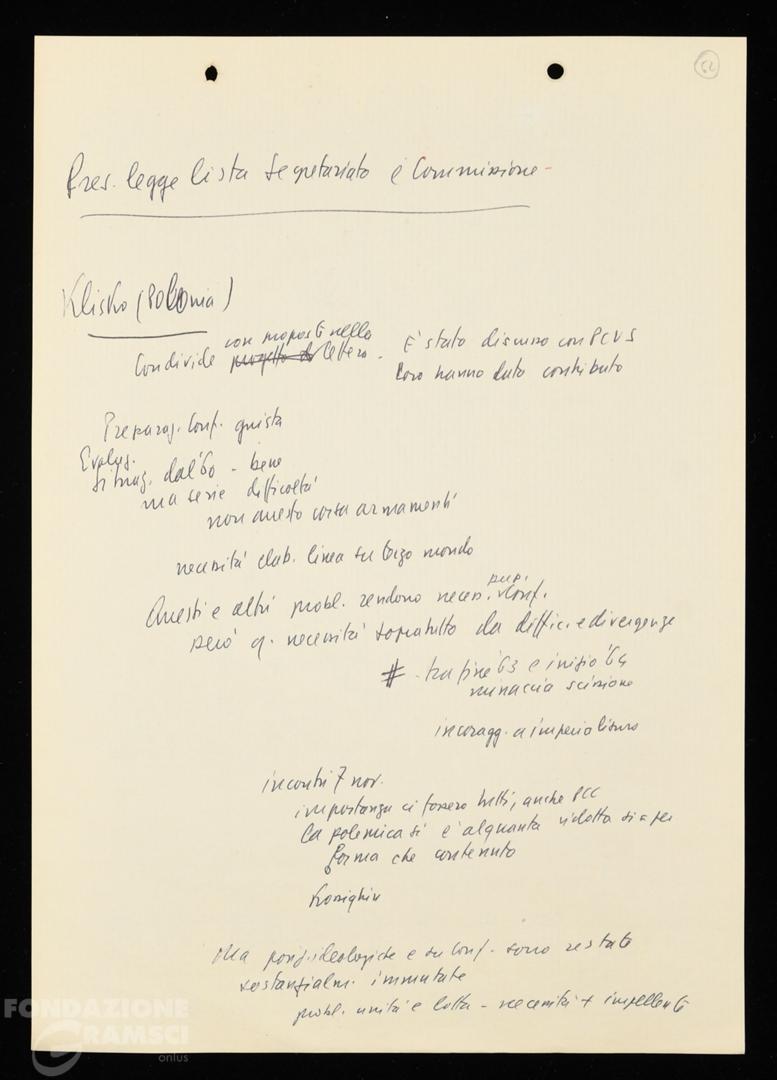 52
Pres. legge lista segretariato e Commissione -
Klisko (Polonia)
con proposte nella
Condivide progetto di lettera. È stato discusso con PCUS
loro hanno dato contributo
Preparaz. Conf. giusta
Evoluz.
Situaz. dal '60 - bene
ma serie difficoltà
corsa armamenti
necessità elab. linea su terzo mondo
prep.
Questi e altri probl. rendono necess. Conf.
però q. necessità sopratutto da diffic. e divergenze
# - tra fine '63 e inizio '64
minaccia scissione
incoragg. a imperialismo
incontri 7 nov.
importanza ci fossero tutti, anche PCC
la polemica si è alquanto ridotta sia per
forma che contenuto
Kossighin
Ma posiz. ideologiche e su Conf. sono restate
sostanzialm. immutate
probl. unità e lotta - necessità + impellente
FONDAZIONE
GRAMSCI
onlus